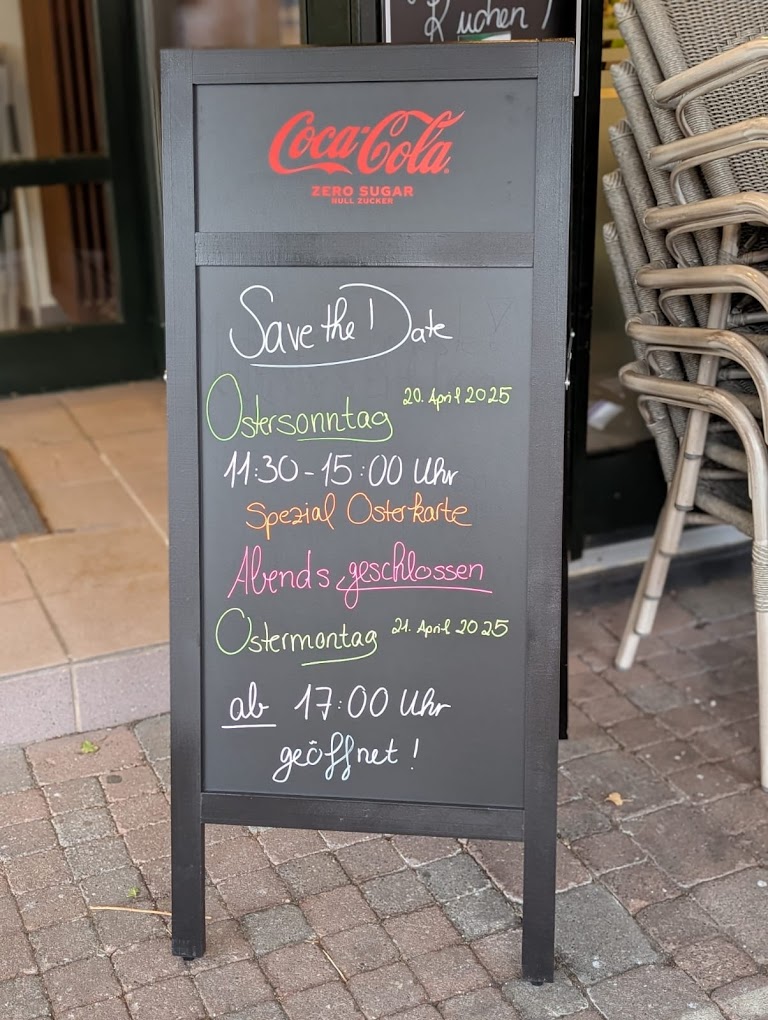 Kuchen
Coca-Cola
ZERO SUGAR
NULL ZUCKER
Save the Date
Ostersonntag 20. April 2025
11:30 - 15:00 Uhr
Spezial Osterkarte
Abends geschlossen
Ostermontag 21. April 2025
ab 17:00 Uhr
geöffnet!